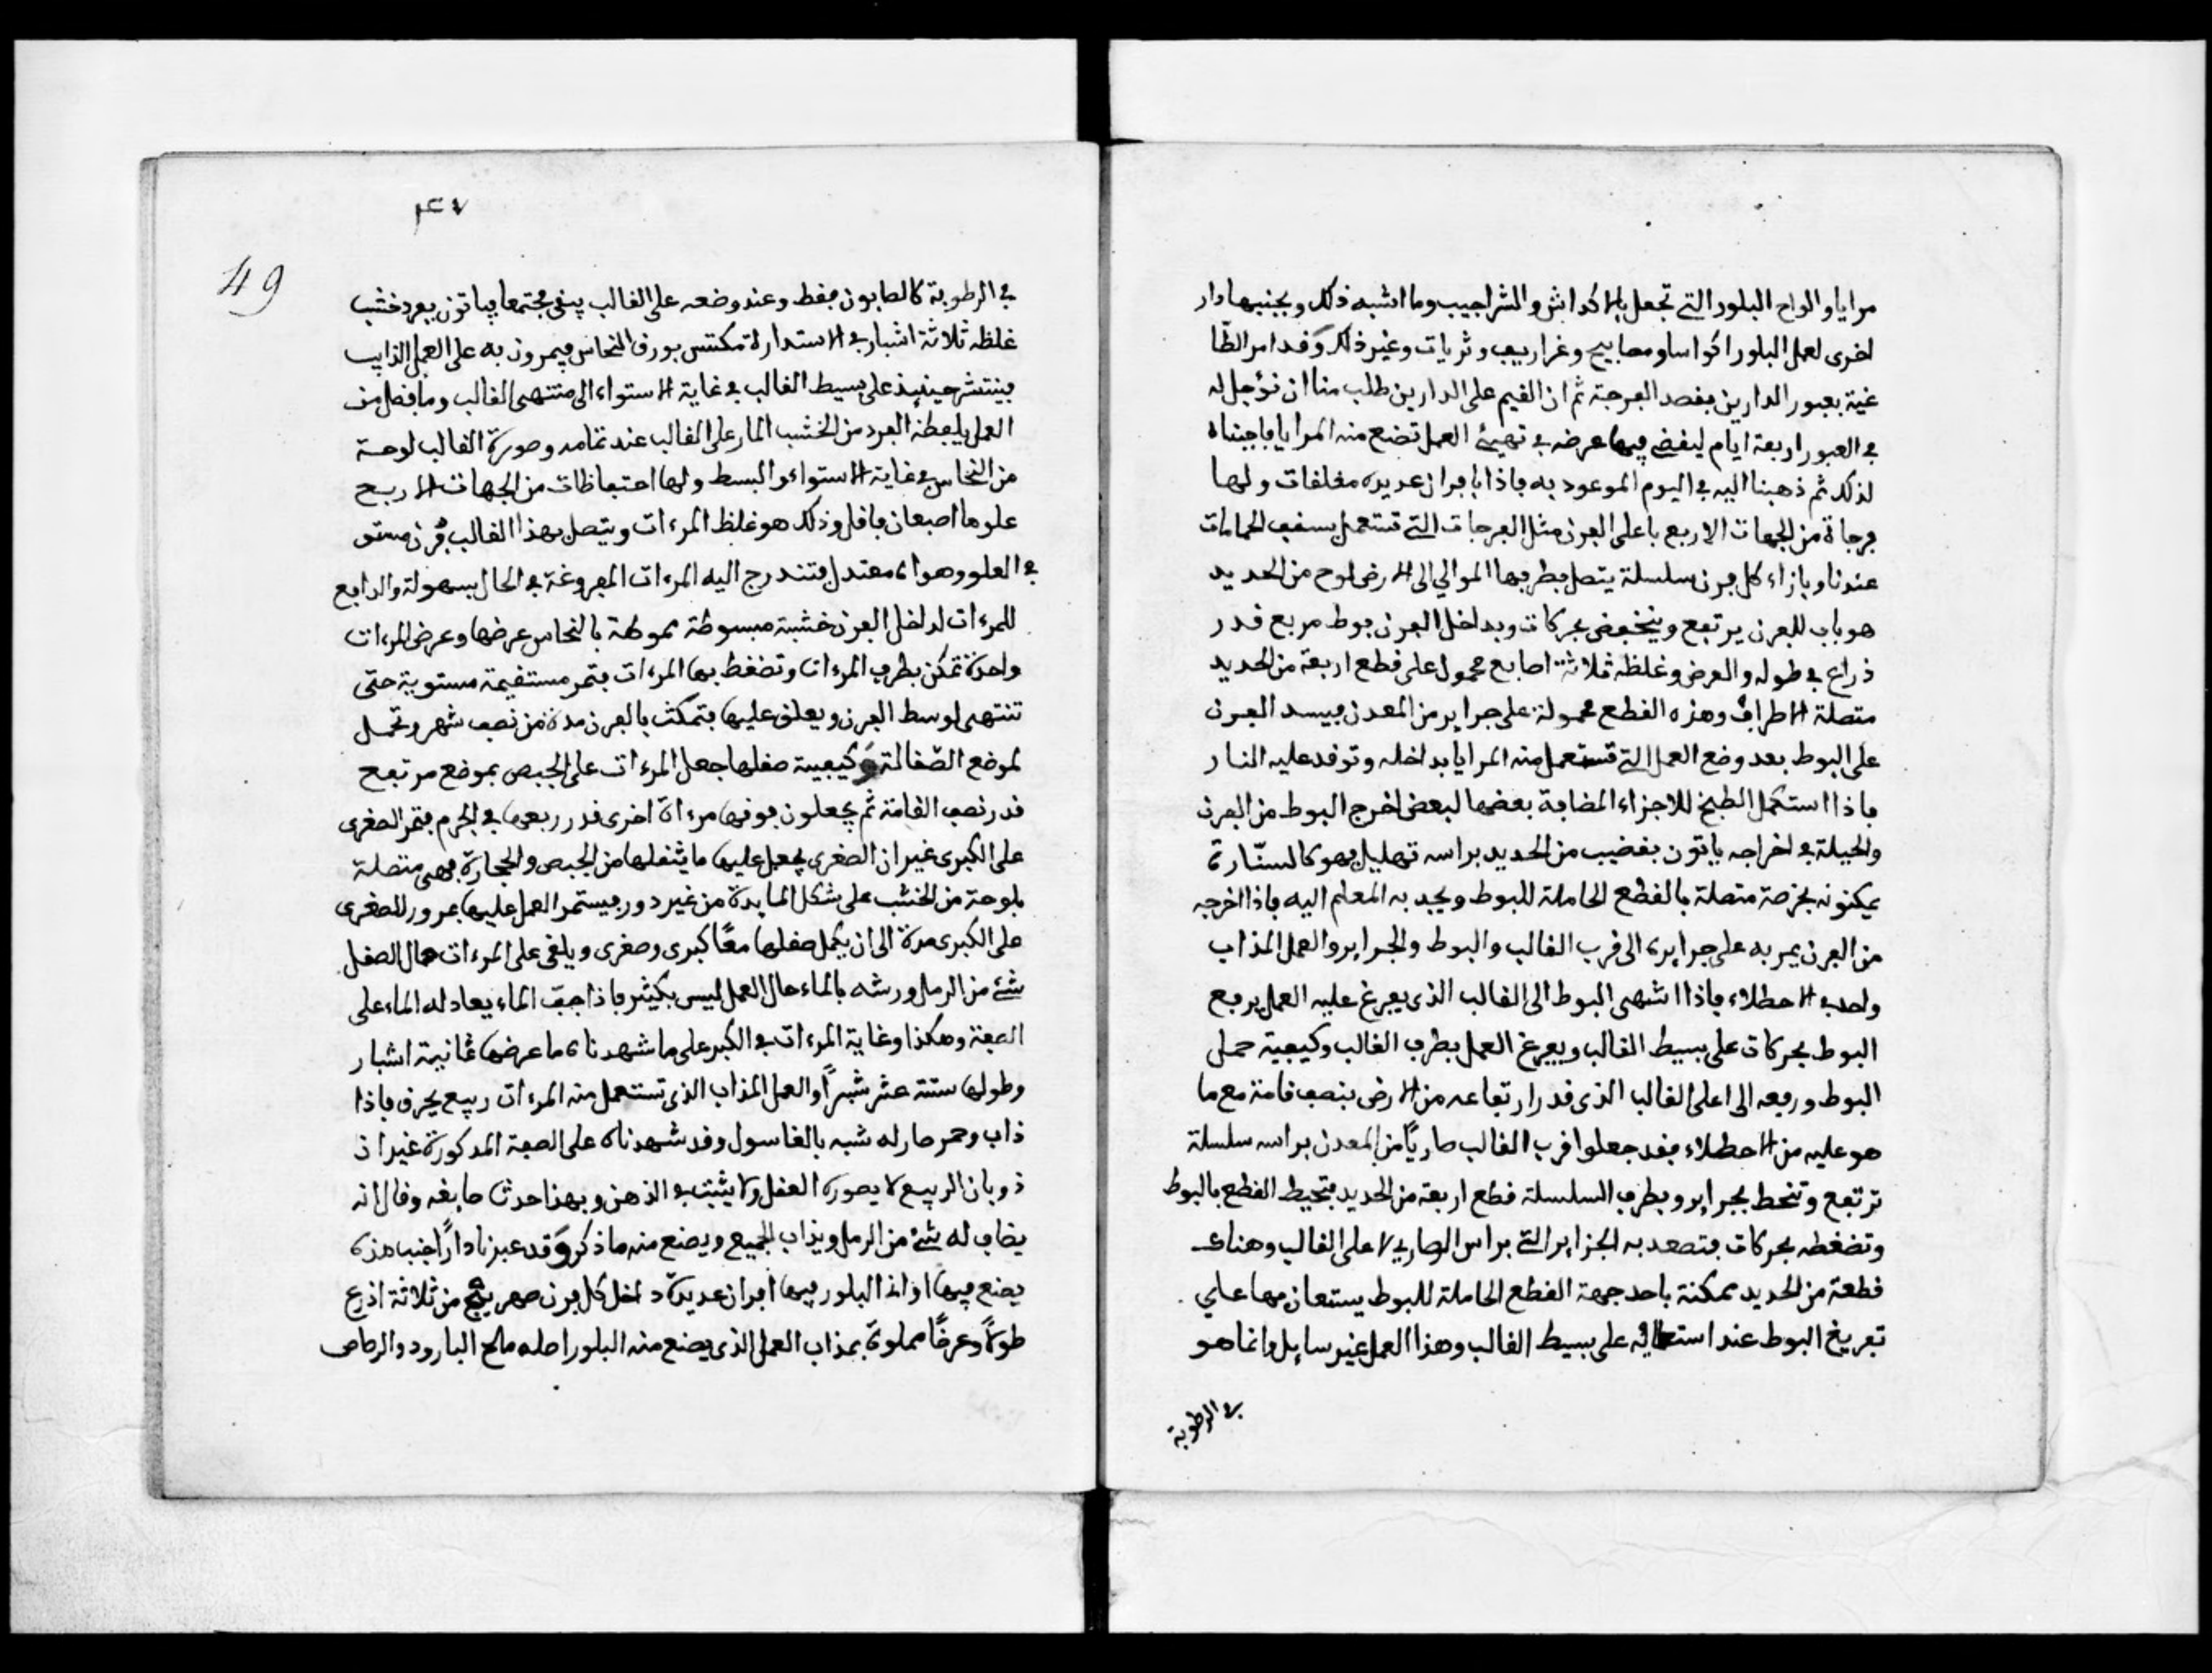 مرايا والواح البلور التي تجعل بالاكداش والشراجيب وما اشبه ذلك وبجنبها دار
اخرى لعمل البلور اكواسا ومصابيح وغراريب وثريات وغير ذلك وقد امر الطا
غية بعبور الدارين بقصد الفرجة ثم ان القيم على الدارين طلب منا ان نؤجل له
في العبور اربعة ايام ليقضي فيها غرضه في تهيئ العمل تصنع منه المرايا فاجبناه
لذلك ثم ذهبنا اليه في اليوم الموعود به فاذا بافران عديدة مغلقات ولها
فرجاة من الجهات الاربع باعلى الفرن مثل الفرجات التي تستعمل بسقف الحمامات
عندنا وبازاء كل فرن سلسلة يتصل بطرفها الموالي الى الارض لوح من الحديد
هو باب للفرن يرتفع وينخفض بحركات وبداخل الفرن بوط مربع قدر
ذراع في طوله والعرض وغلظه ثلاثة اصابع محمول على قطع اربعة من الحديد
متصلة الاطراف وهذه القطع محمولة على جراير من المعدن فيسد الفرن
على البوط بعد وضع العمل التي تستعمل منه المرايا بداخله وتوقد عليه النار
فاذا استكمل الطبخ للاجزاء المضافة بعضها لبعض اخرج البوط من الفرن
والحيلة في اخراجه ياتون بقضيب من الحديد براسه تهليل فهو كالسنّارة
يمكنونه بخرصة متصلة بالقطع الحاملة للبوط ويجبد به المعلم اليه فاذا اخرجه
من الفرن يمر به على جرايره الى قرب القالب والبوط والجراير والعمل المذاب
واحد في الاصطلاء فاذا انتهى البوط الى القالب الذي يفرغ عليه العمل يرفع
البوط بحركات على بسيط القالب ويفرغ العمل بطرف القالب وكيفية حمل
البوط ورفعه الى اعلى القالب الذي قدر ارتفاعه من الارض بنصف قامة مع ما
هو عليه من الاصطلاء فقد جعلوا قرب القالب صاريًا من المعدن براسه سلسلة
ترتفع وتنحط بجراير وبطرف السلسلة قطع اربعة من الحديد فتحيط القطع بالبوط
وتضغطه بحركات فتصعد به الجراير التي براس الصاري لاعلى القالب وهناك
قطعة من الحديد ممكنة باحد جهة القطع الحاملة للبوط يستعان بها على
تفريغ البوط عند استعلائه على بسيط القالب وهذا العمل غير سايل وانما هو
في الرطوبة
49
في الرطوبة كالصابون فقط وعند وضعه على القالب يبقى مجتمعا فياتون بفرد خشب
غلظه ثلاثة اشبار في الاستدارة مكتس بورق النحاس فيمرون به على العمل الذايب
فينتشر حينيذ على بسيط القالب في غاية الاستواء الى منتهى القالب وما فضل من
العمل يلفظه الفرد من الخشب المار على القالب عند تمامه وصورة القالب لوحة
من النحاس في غاية الاستواء والبسط ولها احتفاظات من الجهات الاربع
علوها اصبعان فاقل وذلك هو غلظ المرءات ويتصل بهذا القالب فرن مستو
في العلو وهواه معتدل فتندرج اليه المرءات المفروغة في الحال بسهولة والدافع
للمرءات لداخل الفرن خشبة مبسوطة مموطة بالنحاس عرضها وعرض المرءات
واحدة تمكن بطرف المرءات وتضغط بها المرءات فتمر مستقيمة مستوية حتى
تنتهي لوسط الفرن ويعلق عليها فتمكث بالفرن مدة من نصف شهر وتحمل
لموضع الصّقالة وكيفية صقلها جعل المرءات على الجبص بموضع مرتفع
قدر نصف القامة ثم يجعلون فوقها مرءاة اخرى قدر ربعها في الجرم فتمر الصغرى
على الكبرى غير ان الصغرى يجعل عليها ما يثقلها من الجبص والحجارة فهي متصلة
بلوحة من الخشب على شكل المايدة من غير دور فيستمر العمل عليها بمرور الصغرى
على الكبرى مدة الى ان يكمل صقلها معًا كبرى وصغرى ويلقى على المرءات حال الصقل
شئ من الرمل ورشه بالماء حال العمل ليس بكثير فاذا جفّ الماء يعاد له الماء على
الصفة وهكذا وغاية المرءات في الكبر على ما شهدناه ما عرضها ثمانية اشبار
وطولها ستة عشر شبرًا والعمل المذاب الذي تستعمل منه المرءات ربيع يحرق فاذا
ذاب وحمر صار له شبه بالغاسول وقد شهدناه على الصفة المذكورة غير ان
ذوبان الربيع لا يصوره العقل ولا يثبت في الذهن وبهذا حدث صانعه وقال انه
يضاف له شئ من الرمل ويذاب الجميع ويصنع منه ما ذكر وقد عبرنا دارًا جنب هذه
يصنع فيها اوانى البلور فيها افران عديدة داخل كل فرن صهريج من ثلاثة اذرع
طولاً وعرضًا مملوة بمذاب العمل الذي يصنع منه البلور اصله ملح البارود والرصاص